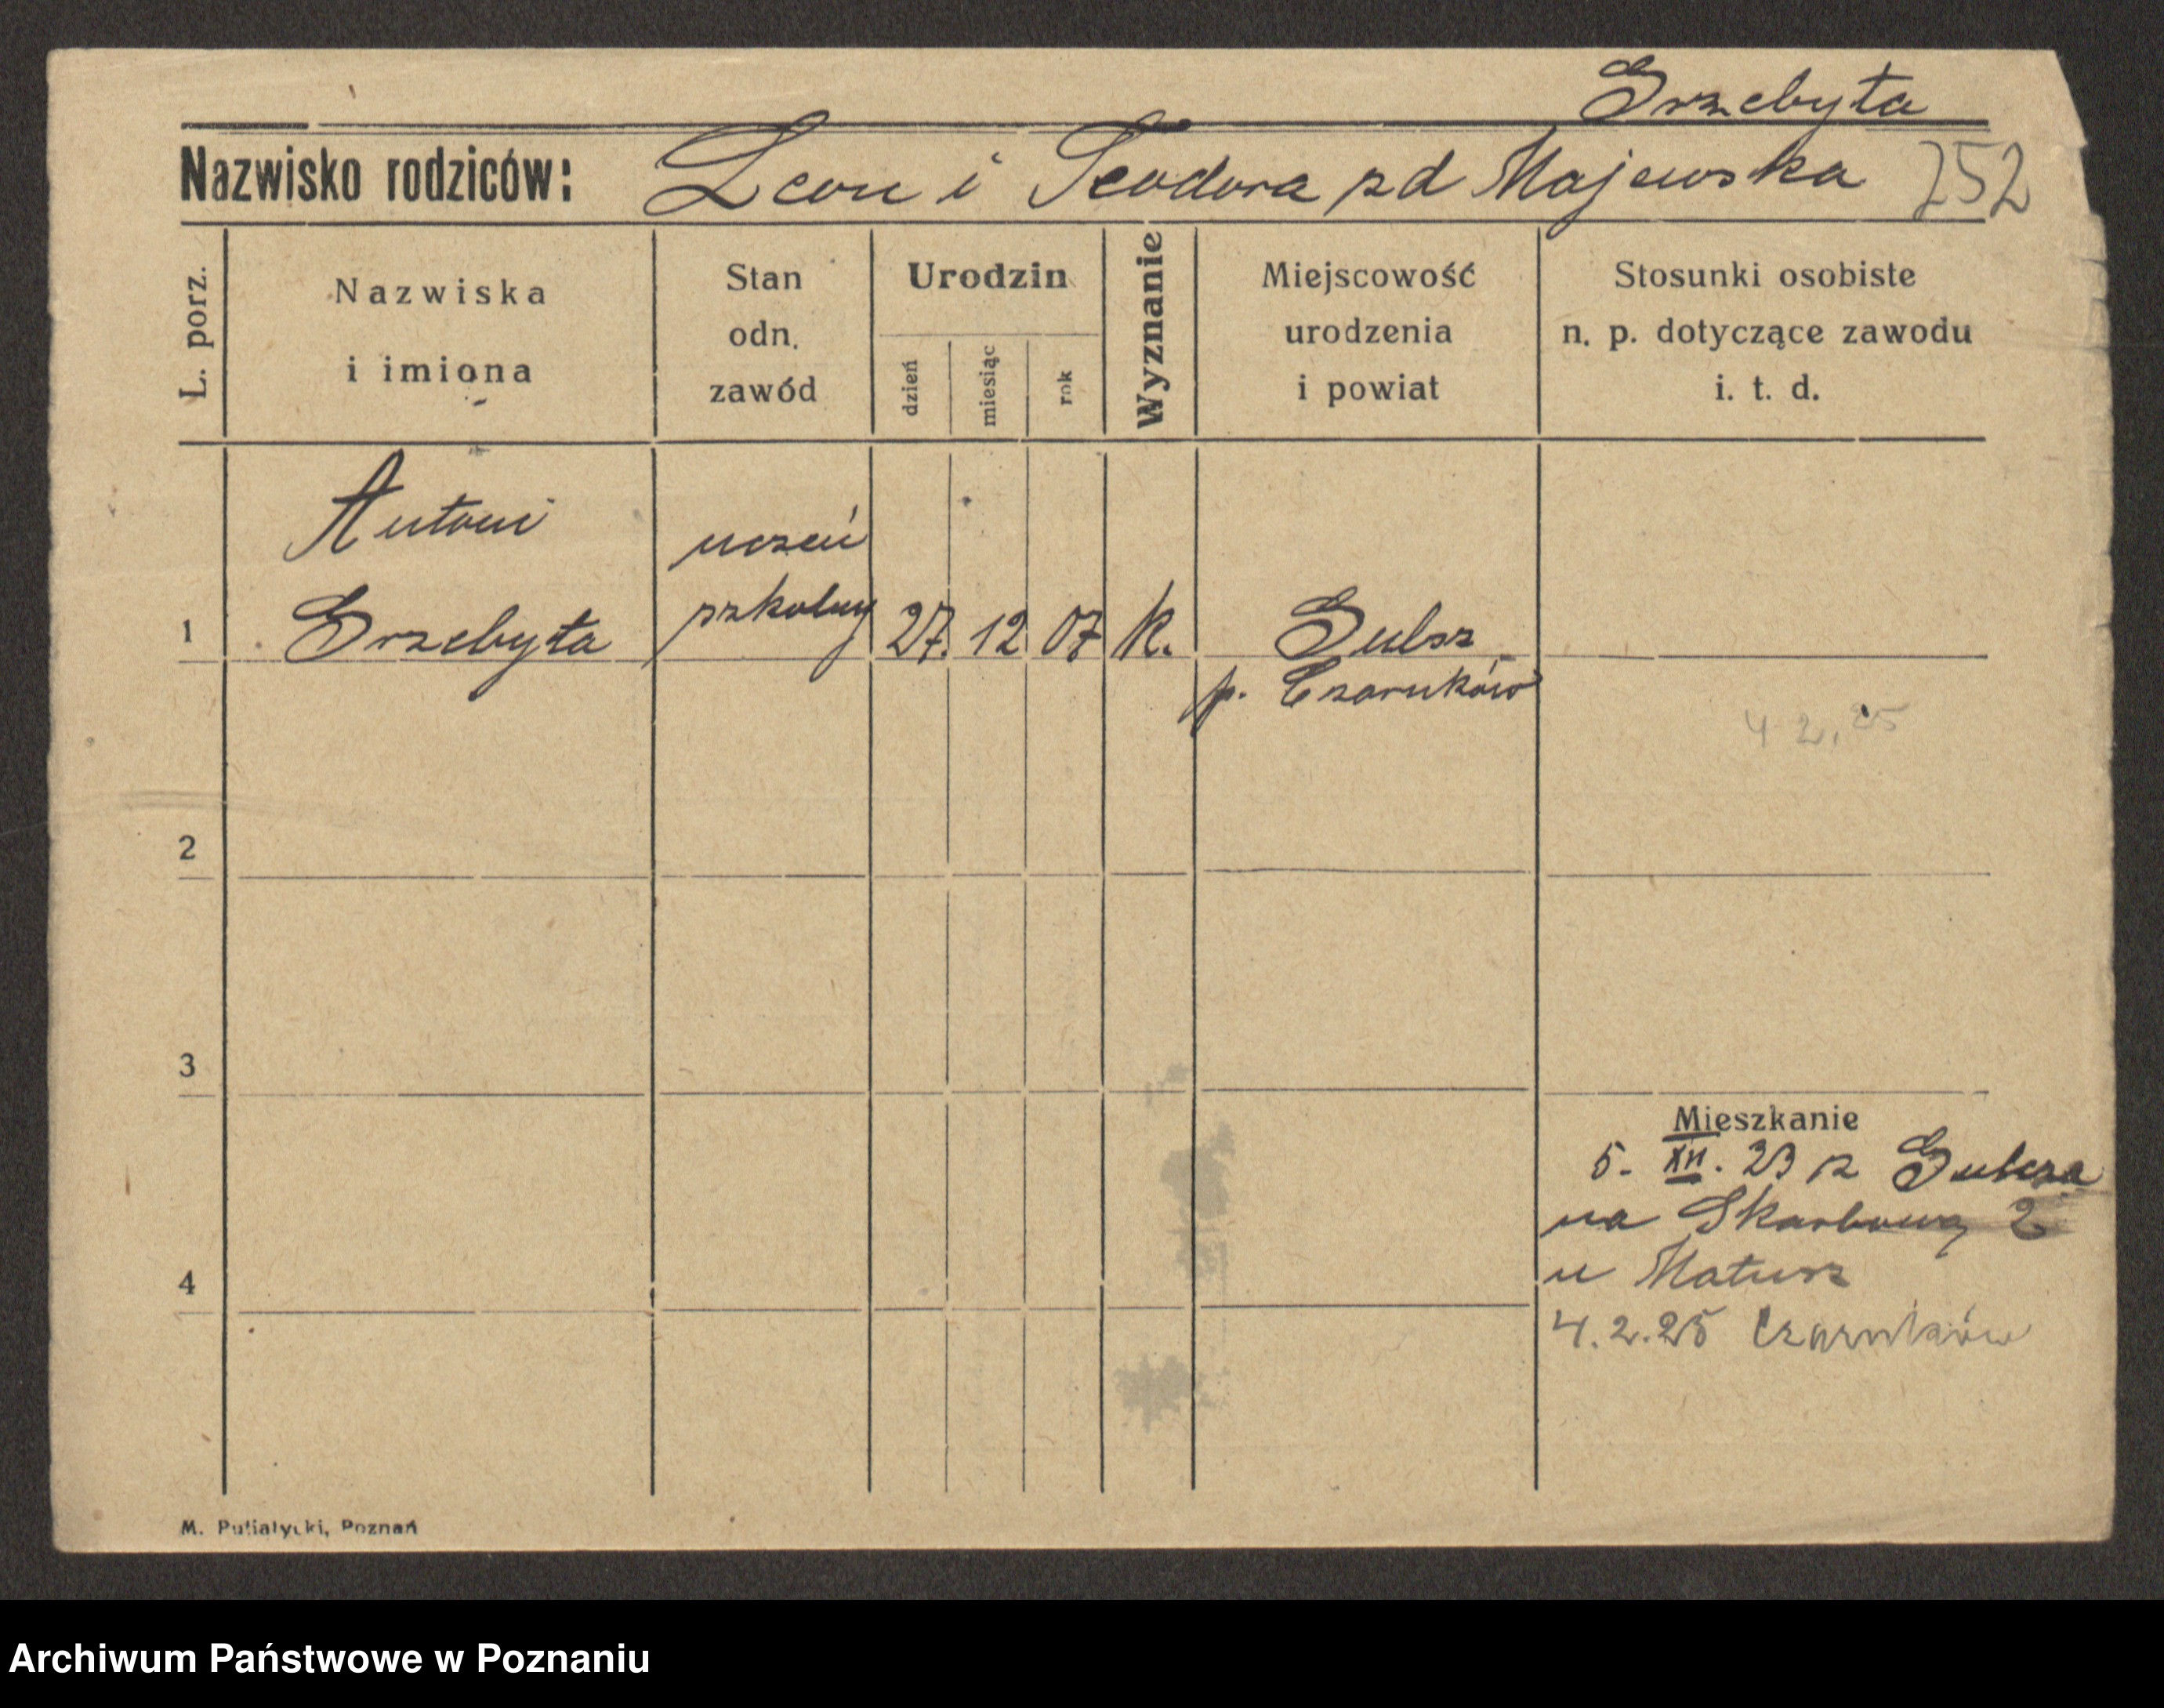 Grzebyta
Nazwisko rodziców: Leon i Teodora zd Majewska 252
L. porz.
Nazwiska
i imiona
Stan
odn.
zawód
Urodzin
dzień
miesiąc
rok
Wyznanie
Miejscowość
urodzenia
i powiat
Stosunki osobiste
n. p. dotyczące zawodu
i. t. d.
Antoni
uczeń
1 Grzebyta szkolny 27. 12 07 k. Gulsz
p. Czarnków
4 2, 25
2
3
Mieszkanie
5. XII. 23 z Gulcza
na Skarbową 2
u Matusz
4
4.2.25 Czarnków
M. Putiatycki, Poznań
Archiwum Państwowe w Poznaniu